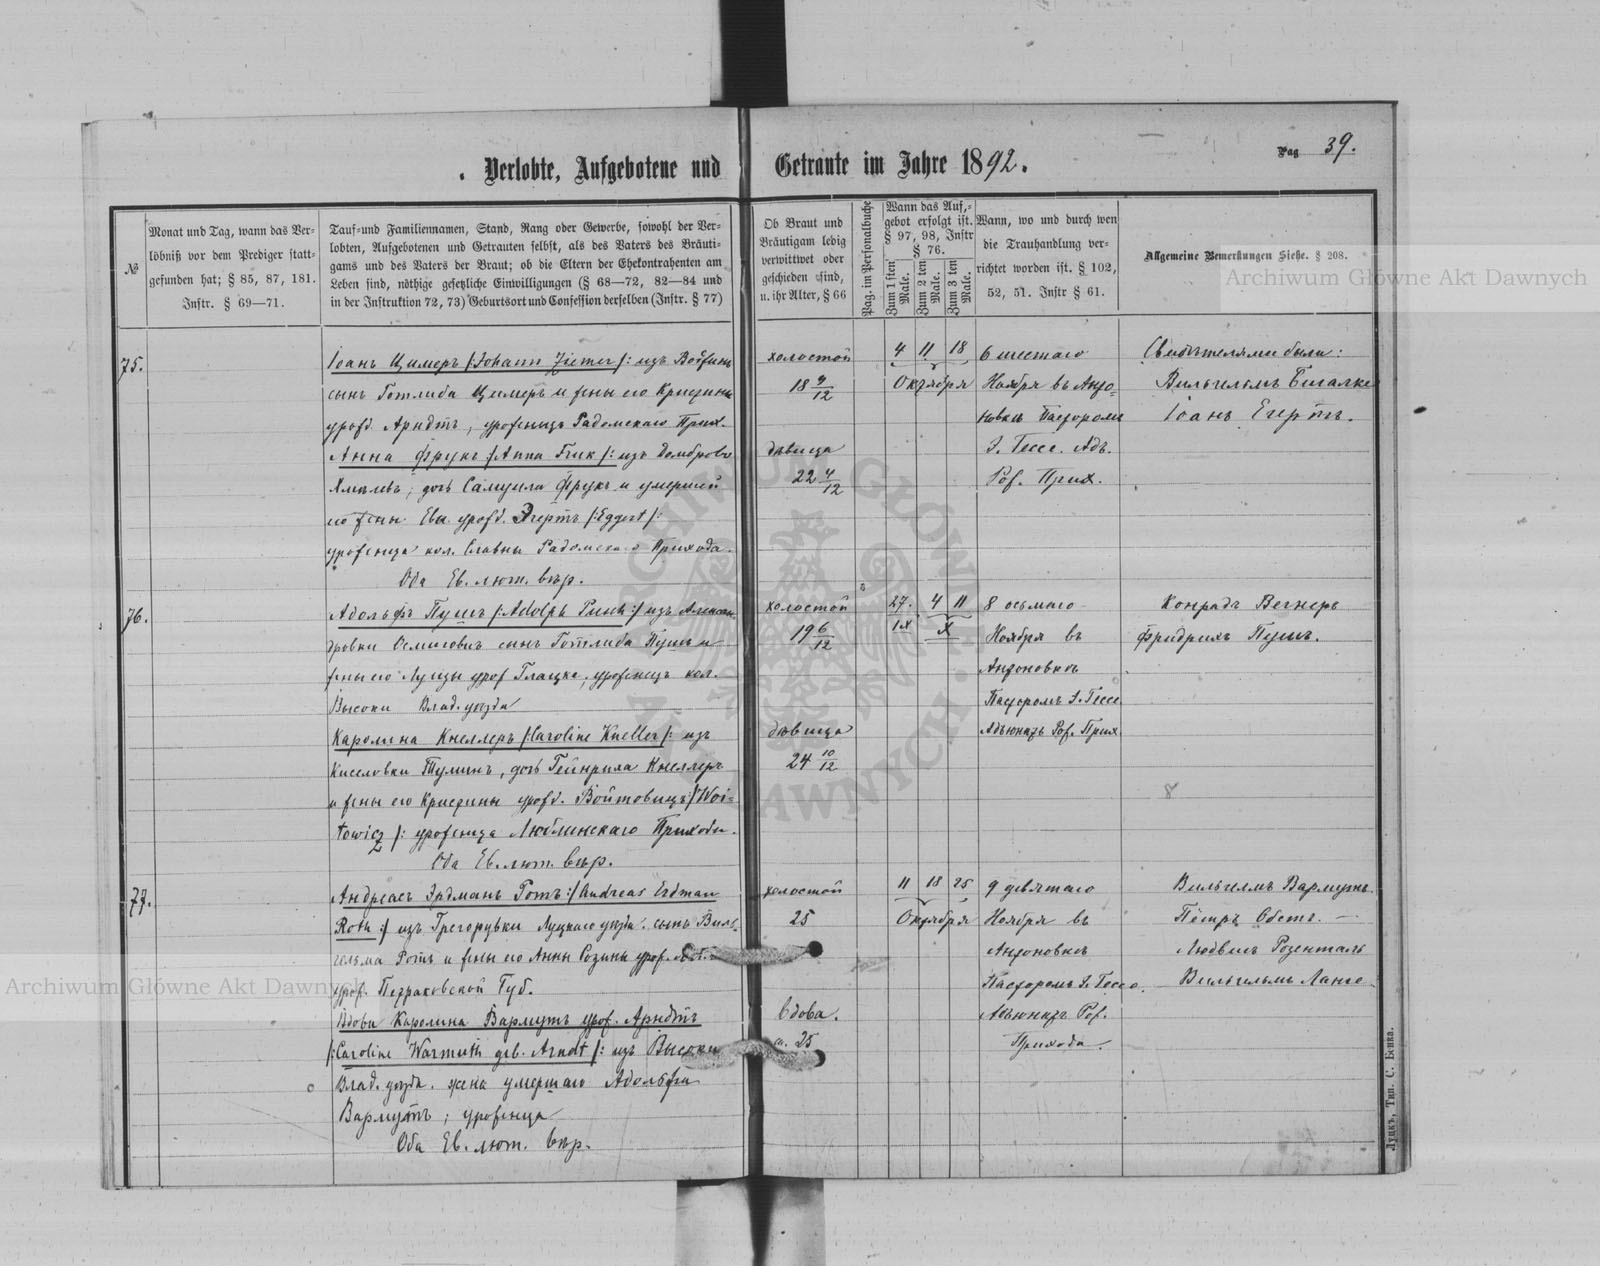 Verlobte, Aufgebotene und Getraute im Jahre 1892.
Pag 39.
№
Monat und Tag, wann das Ver-
löbniß vor dem Prediger statt-
gefunden hat; § 85, 87, 181.
Instr. § 69—71.
Tauf- und Familiennamen, Stand, Rang oder Gewerbe, sowohl der Ver-
lobten, Aufgebotenen und Getrauten selbst, als des Vaters des Bräuti-
gams und des Vaters der Braut; ob die Eltern der Ehekontrahenten am
Leben sind, nöthige gesetzliche Einwilligungen (§ 68—72, 82—84 und
in der Instruktion 72, 73) Geburtsort und Confession derselben (Instr. § 77)
Ob Braut und
Bräutigam ledig
verwittwet oder
geschieden sind,
u. ihr Alter, § 66
Pag. im Personalbuche
Wann das Auf-
gebot erfolgt ist.
§ 97, 98, Instr
§ 76.
Zum 1 sten Male.
Zum 2 ten Male.
Zum 3 ten Male.
Wann, wo und durch wen
die Trauhandlung ver-
richtet worden ist. § 102,
52, 51. Instr § 61.
Allgemeine Bemerkungen Siehe. § 208.
Archiwum Główne Akt Dawnych
75.
Іоанъ Цимеръ /:Johann Ziemer/: изъ
сынъ Готлиба Цимеръ и жены его Кристины
урожд. Арндтъ, уроженецъ Радомскаго Прих.
Анна Фрукъ :/Anna Fruk/: изъ Домброва
дочь Самуила Фрукъ и умершей
его жены Евы урожд. Эгертъ /:Eggert/:
уроженца кол. Славны Радомскаго Прихода.
Оба Ев. лют. вѣр.
холостой
18 9/12
дѣвица
22 4/12
4 11 18
Октября
6 шестаго
Ноября въ Анто=
новкѣ Пасторомъ
Э. Гессе. Адъ.
Рож. Прих.
Свидѣтелями были:
Вильгельмъ Бигалке
Іоанъ Егертъ.
76.
Адольфъ Пушъ /:Adolph Pusch:/ изъ Алексан
дровки сынъ Готлиба Пушъ и
жены его Луизы урож Глацке, уроженецъ кол.
Высоки Влад. уѣзда
Каролина Кнеллеръ /:Caroline Kneller/: изъ
Киселовки дочь Гейнриха Кнеллеръ
и жены его Кристины урожд. Войтовицъ:/Woi=
towicz/: уроженца Люблинскаго Прихода.
Оба Ев. лют. вѣр.
холостой
19 6/12
дѣвица
24 10/12
27. 4 11
IX X
8 осьмаго
Ноября въ
Антоновкѣ
Пасторомъ Э. Гессе
Адъюнктъ Рож. Прих
Конрадъ Вегнеръ
Фридрихъ Пушъ.
8
77.
Андреасъ Эрдманъ Ротъ:/Andreas Erdman
Roth:/ изъ Грегоровки Луцкаго уѣзда. сынъ Виль-
гельма Ротъ и жены его Анны Розины урож.
урож. Петраковской Губ.
Вдова Каролина Вармутъ урож. Арндтъ
/:Caroline Warmuth geb. Arndt/: изъ Высоки
Влад. уѣзда. жена умершаго Адольфа
Вармутъ; уроженца
Оба Ев. лют. вѣр.
холостой
25
вдова.
25
11 18 25
Октября
9 девятаго
Ноября въ
Антоновкѣ
Пасторомъ Э. Гессе.
Адъюнктъ Рож.
Прихода.
Вильгелмъ Вармутъ.
Петръ
Людвигъ Розенталь
Вильгельмъ Ланге
Archiwum Główne Akt Dawnych
Луцкъ, Тип. С. Бенка.
ARCHIWUM GŁÓWNE AKT DAWNYCH